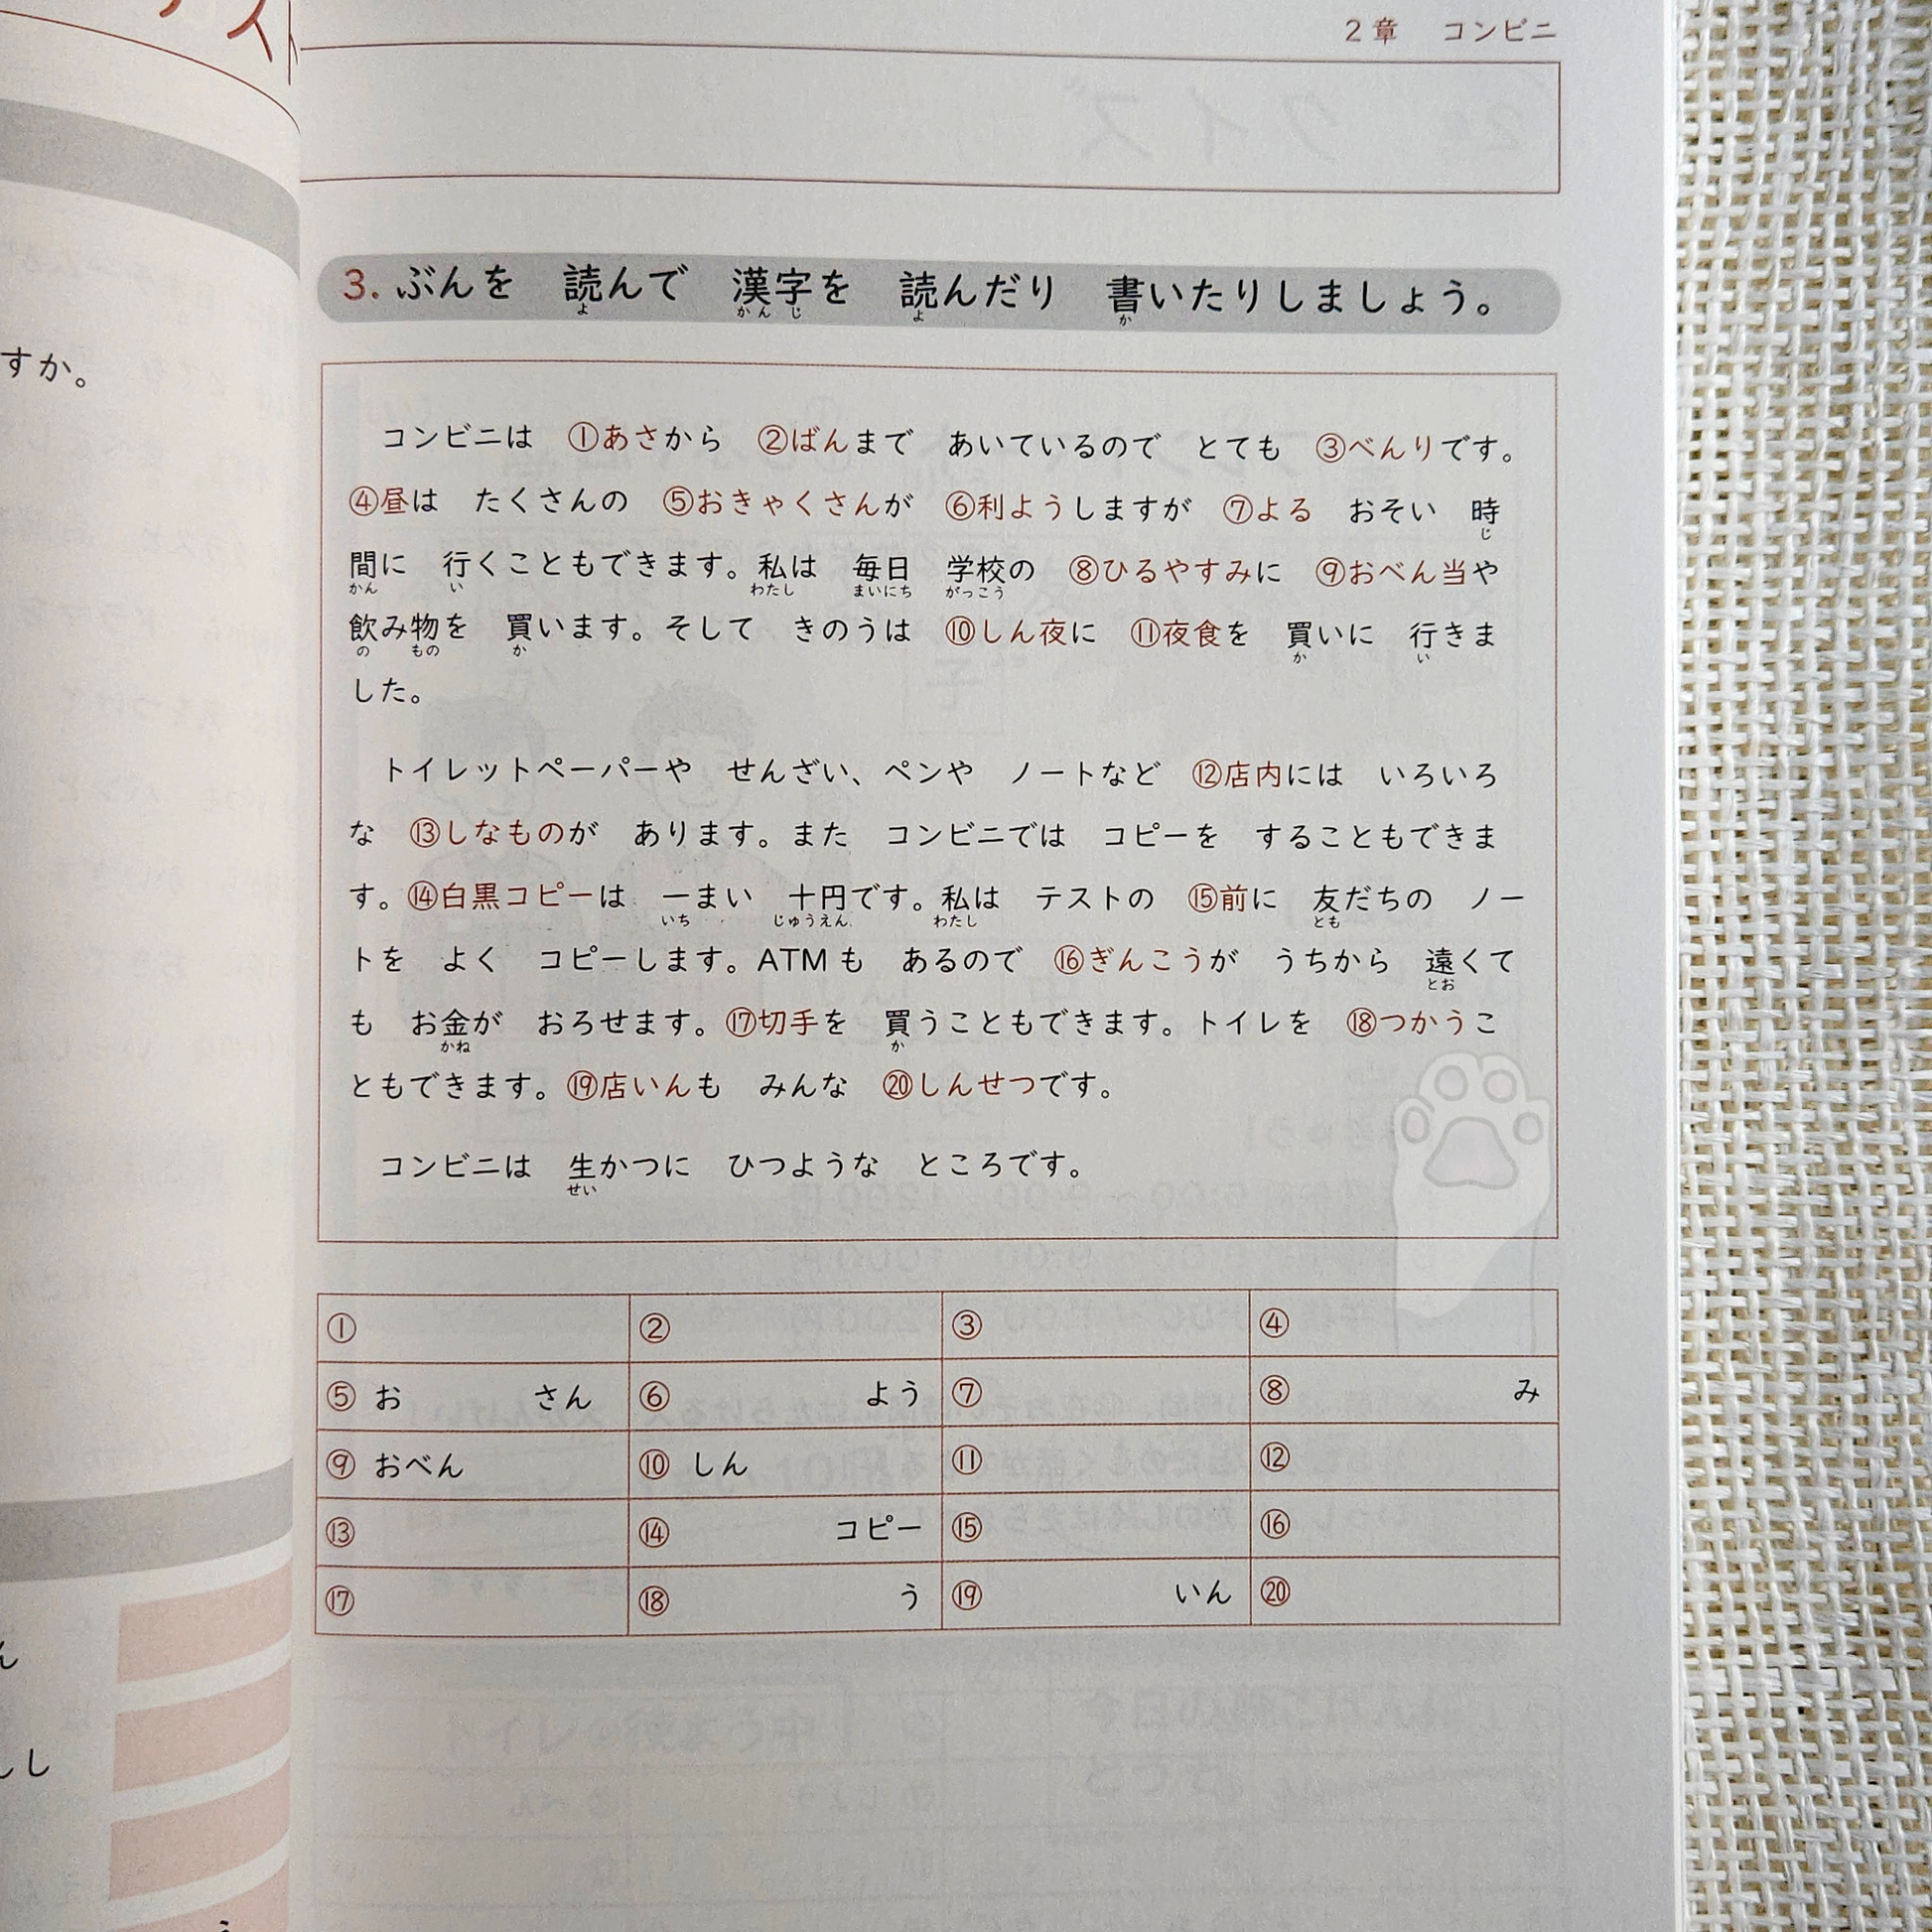 2章　コンビニ
すか。
3. ぶんを　読んで　漢字を　読んだり　書いたりしましょう。
よ　かんじ　よ　か
コンビニは　①あさから　②ばんまで　あいているので　とても　③べんりです。
④昼は　たくさんの　⑤おきゃくさんが　⑥利ようしますが　⑦よる　おそい　時
じ
間に　行くこともできます。私は　毎日　学校の　⑧ひるやすみに　⑨おべん当や
かん　い　わたし　まいにち　がっこう
飲み物を　買います。そして　きのうは　⑩しん夜に　⑪夜食を　買いに　行きま
の　もの　か　か　い
した。
トイレットペーパーや　せんざい、ペンや　ノートなど　⑫店内には　いろいろ
な　⑬しなものが　あります。また　コンビニでは　コピーを　することもできま
す。⑭白黒コピーは　一まい　十円です。私は　テストの　⑮前に　友だちの　ノー
いち　じゅうえん　わたし　とも
トを　よく　コピーします。ATMも　あるので　⑯ぎんこうが　うちから　遠くて
とお
も　お金が　おろせます。⑰切手を　買うこともできます。トイレを　⑱つかうこ
かね　か
ともできます。⑲店いんも　みんな　⑳しんせつです。
コンビニは　生かつに　ひつような　ところです。
せい
①　②　③　④
⑤ お　さん　⑥　よう　⑦　⑧　み
⑨ おべん　⑩ しん　⑪　⑫
⑬　⑭　コピー　⑮　⑯
⑰　⑱　う　⑲　いん　⑳